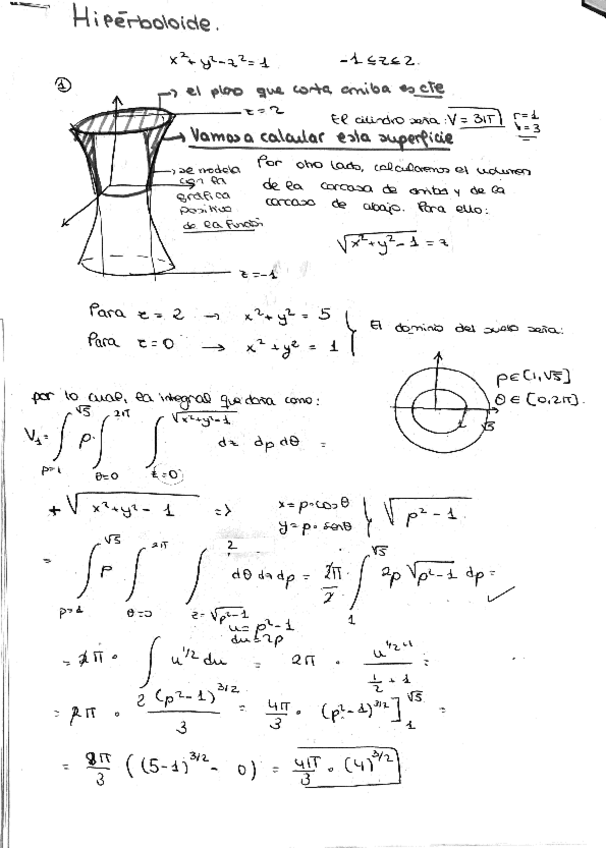 Hipérboloide.
x²+y²-z²=1 -1≤z≤2.
① → el plano que corta arriba es cte
z=2
El cilindro sería: V=3π r=1
h=3
→ Vamos a calcular esta superficie
→ se modela
con la
gráfica
positiva
de la función
Por otro lado, calcularemos el volumen
de la carcasa de arriba y de la
carcasa de abajo. Para ello:
√(x²+y²-1) = z
z=-1
Para z=2 → x²+y² = 5
Para z=0 → x²+y² = 1
El dominio del suelo sería:
ρ∈[1,√5]
θ∈[0,2π].
1 √5
por lo cual, la integral quedaría como:
V₁= ∫_{ρ=1}^{√5} ρ· ∫_{θ=0}^{2π} ∫_{z=0}^{√(x²+y²-1)} dz dρ dθ =
+√(x²+y²-1) => x=ρ·cosθ
y=ρ·senθ } √(ρ²-1)
= ∫_{ρ=1}^{√5} ρ ∫_{θ=0}^{2π} ∫_{z=√(ρ²-1)}^{2} dθ dz dρ = 2π/2 · ∫_{1}^{√5} 2ρ √(ρ²-1) dρ =
u=ρ²-1
du=2ρ
= 2π · ∫ u^{1/2} du = 2π · u^{1/2+1} / (1/2 + 1) =
= 2π · 2(ρ²-1)^{3/2} / 3 = 4π/3 · (ρ²-1)^{3/2} ]_{1}^{√5} =
= 8π/3 ((5-1)^{3/2} - 0) = 4π/3 · (4)^{3/2}